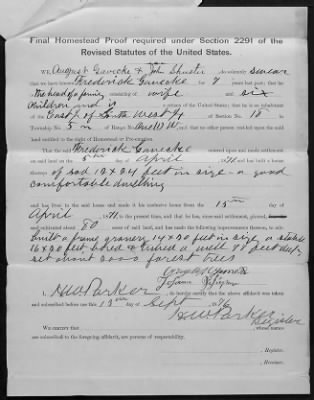 Final Homestead Proof required under Section 2291 of the
Revised Statutes of the United States.
We, August & John do solemnly swear
that we have known Frederick for 7 years last past;
the head of a family consisting of wife and six
children and is a citizen of the United States; that he is an inhabitant
of the East ½ of South West ¼ of Section No. 18
Township No. 5 n of Range No. One W and that no other person resided upon the said
land entitled to the right of Homestead or Pre-emption.
That the said Frederick entered upon and made settlement
on said land on the 5th day of April 1871 and has built a house
thereon of sod 12 x 24 feet in size a good
comfortable dwelling
and has lived in the said house and made it his exclusive home from the 15th day of
April 1871, to the present time, and that he has, since said settlement, plowed,
and cultivated about 80 acres of said land, and has made the following improvements thereon, to wit:
built a frame granary 14 x 20 feet in size a stable
16 x 20 feet, dug & curbed a well feet deep,
set about 2000 forest trees
I, H. W. Parker do hereby certify that the above affidavit was taken
and subscribed before me this day of Sept 1876
H. W. Parker
Register
We certify that whose names
are subscribed to the foregoing affidavit, are persons of respectability.
, Register.
, Receiver.